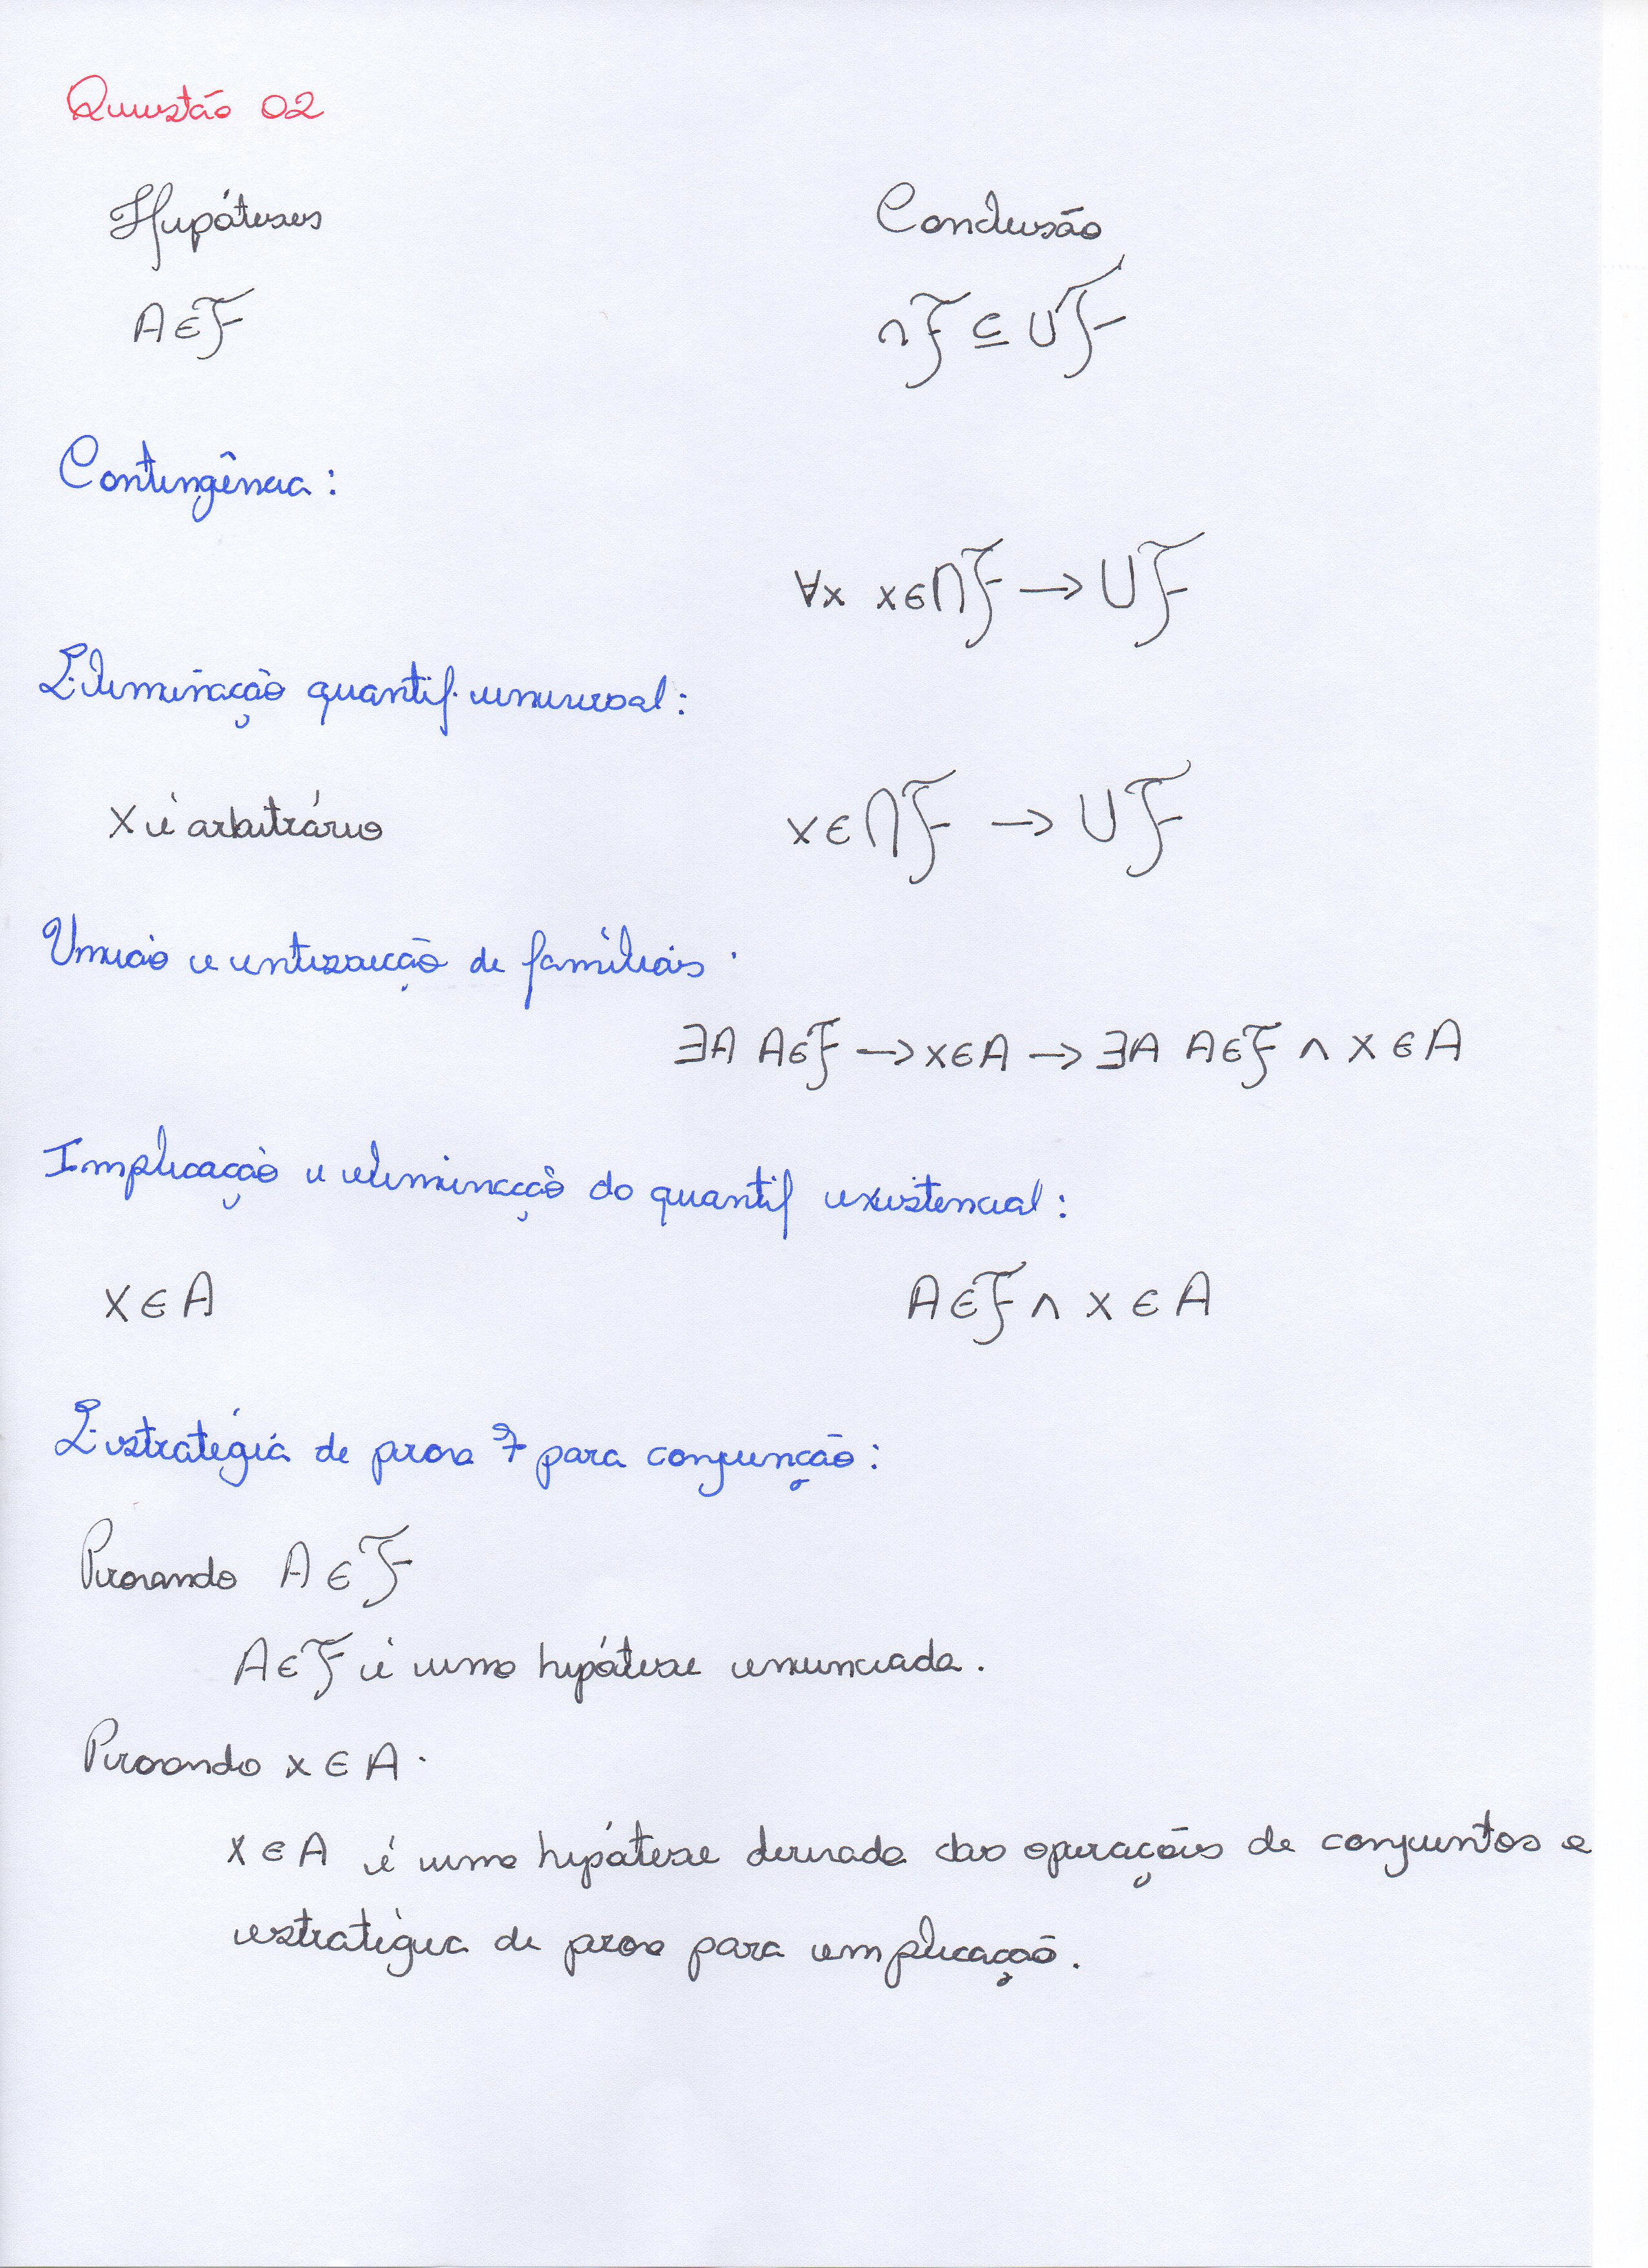 Questão 02
Hipóteses Conclusão
A ∈ F ∩F ⊆ ∪F
Contingência:
∀x x ∈ ∩F → ∪F
Eliminação quantif. universal:
x é arbitrário x ∈ ∩F → ∪F
União e interseção de famílias:
∃A A ∈ F → x ∈ A → ∃A A ∈ F ∧ x ∈ A
Implicação e eliminação do quantif existencial:
x ∈ A A ∈ F ∧ x ∈ A
Estratégia de prova 7 para conjunção:
Provando A ∈ F
A ∈ F é uma hipótese enunciada.
Provando x ∈ A.
x ∈ A é uma hipótese derivada das operações de conjuntos e
estratégia de prova para implicação.